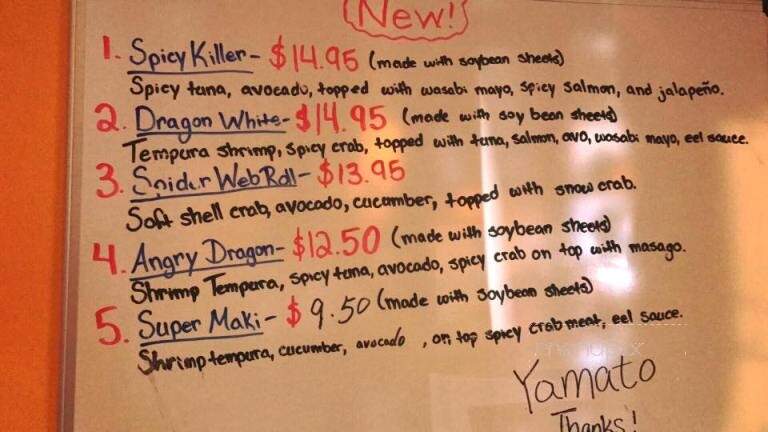 New!
1. Spicy Killer- $14.95 (made with soybean sheets)
Spicy tuna, avocado, topped with wasabi mayo, spicy salmon, and jalapeño.
2. Dragon White- $14.95 (made with soy bean sheets)
Tempura shrimp, spicy crab, topped with tuna, salmon, avo, wasabi mayo, eel sauce.
3. Spider Web Roll- $13.95
Soft shell crab, avocado, cucumber, topped with snow crab.
4. Angry Dragon- $12.50 (made with soybean sheets)
Shrimp Tempura, spicy tuna, avocado, spicy crab on top with masago.
5. Super Maki- $9.50 (made with soybean sheets)
Shrimp tempura, cucumber, avocado , on top spicy crab meat, eel sauce.
Yamato
Thanks!